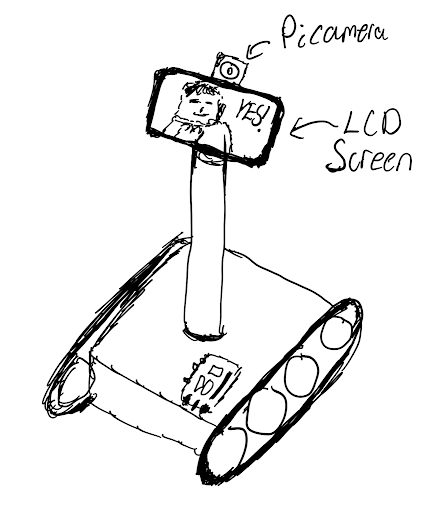 Picamera
YES!
LCD
Screen